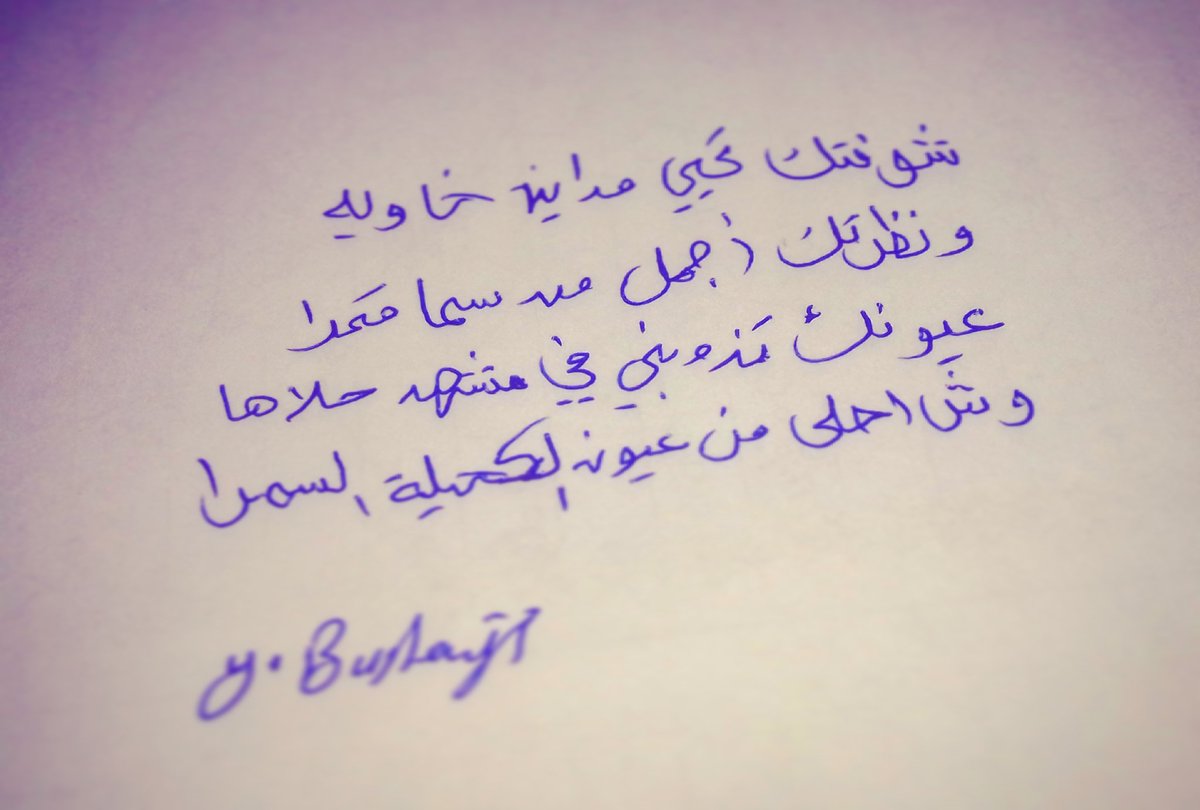 شوفتك تحيي مداين خاويه
ونظرتك أجمل من سما قمرا
عيونك تذوبني في مشهد حلاها
وش احلى من عيون الكحيلة السمرا